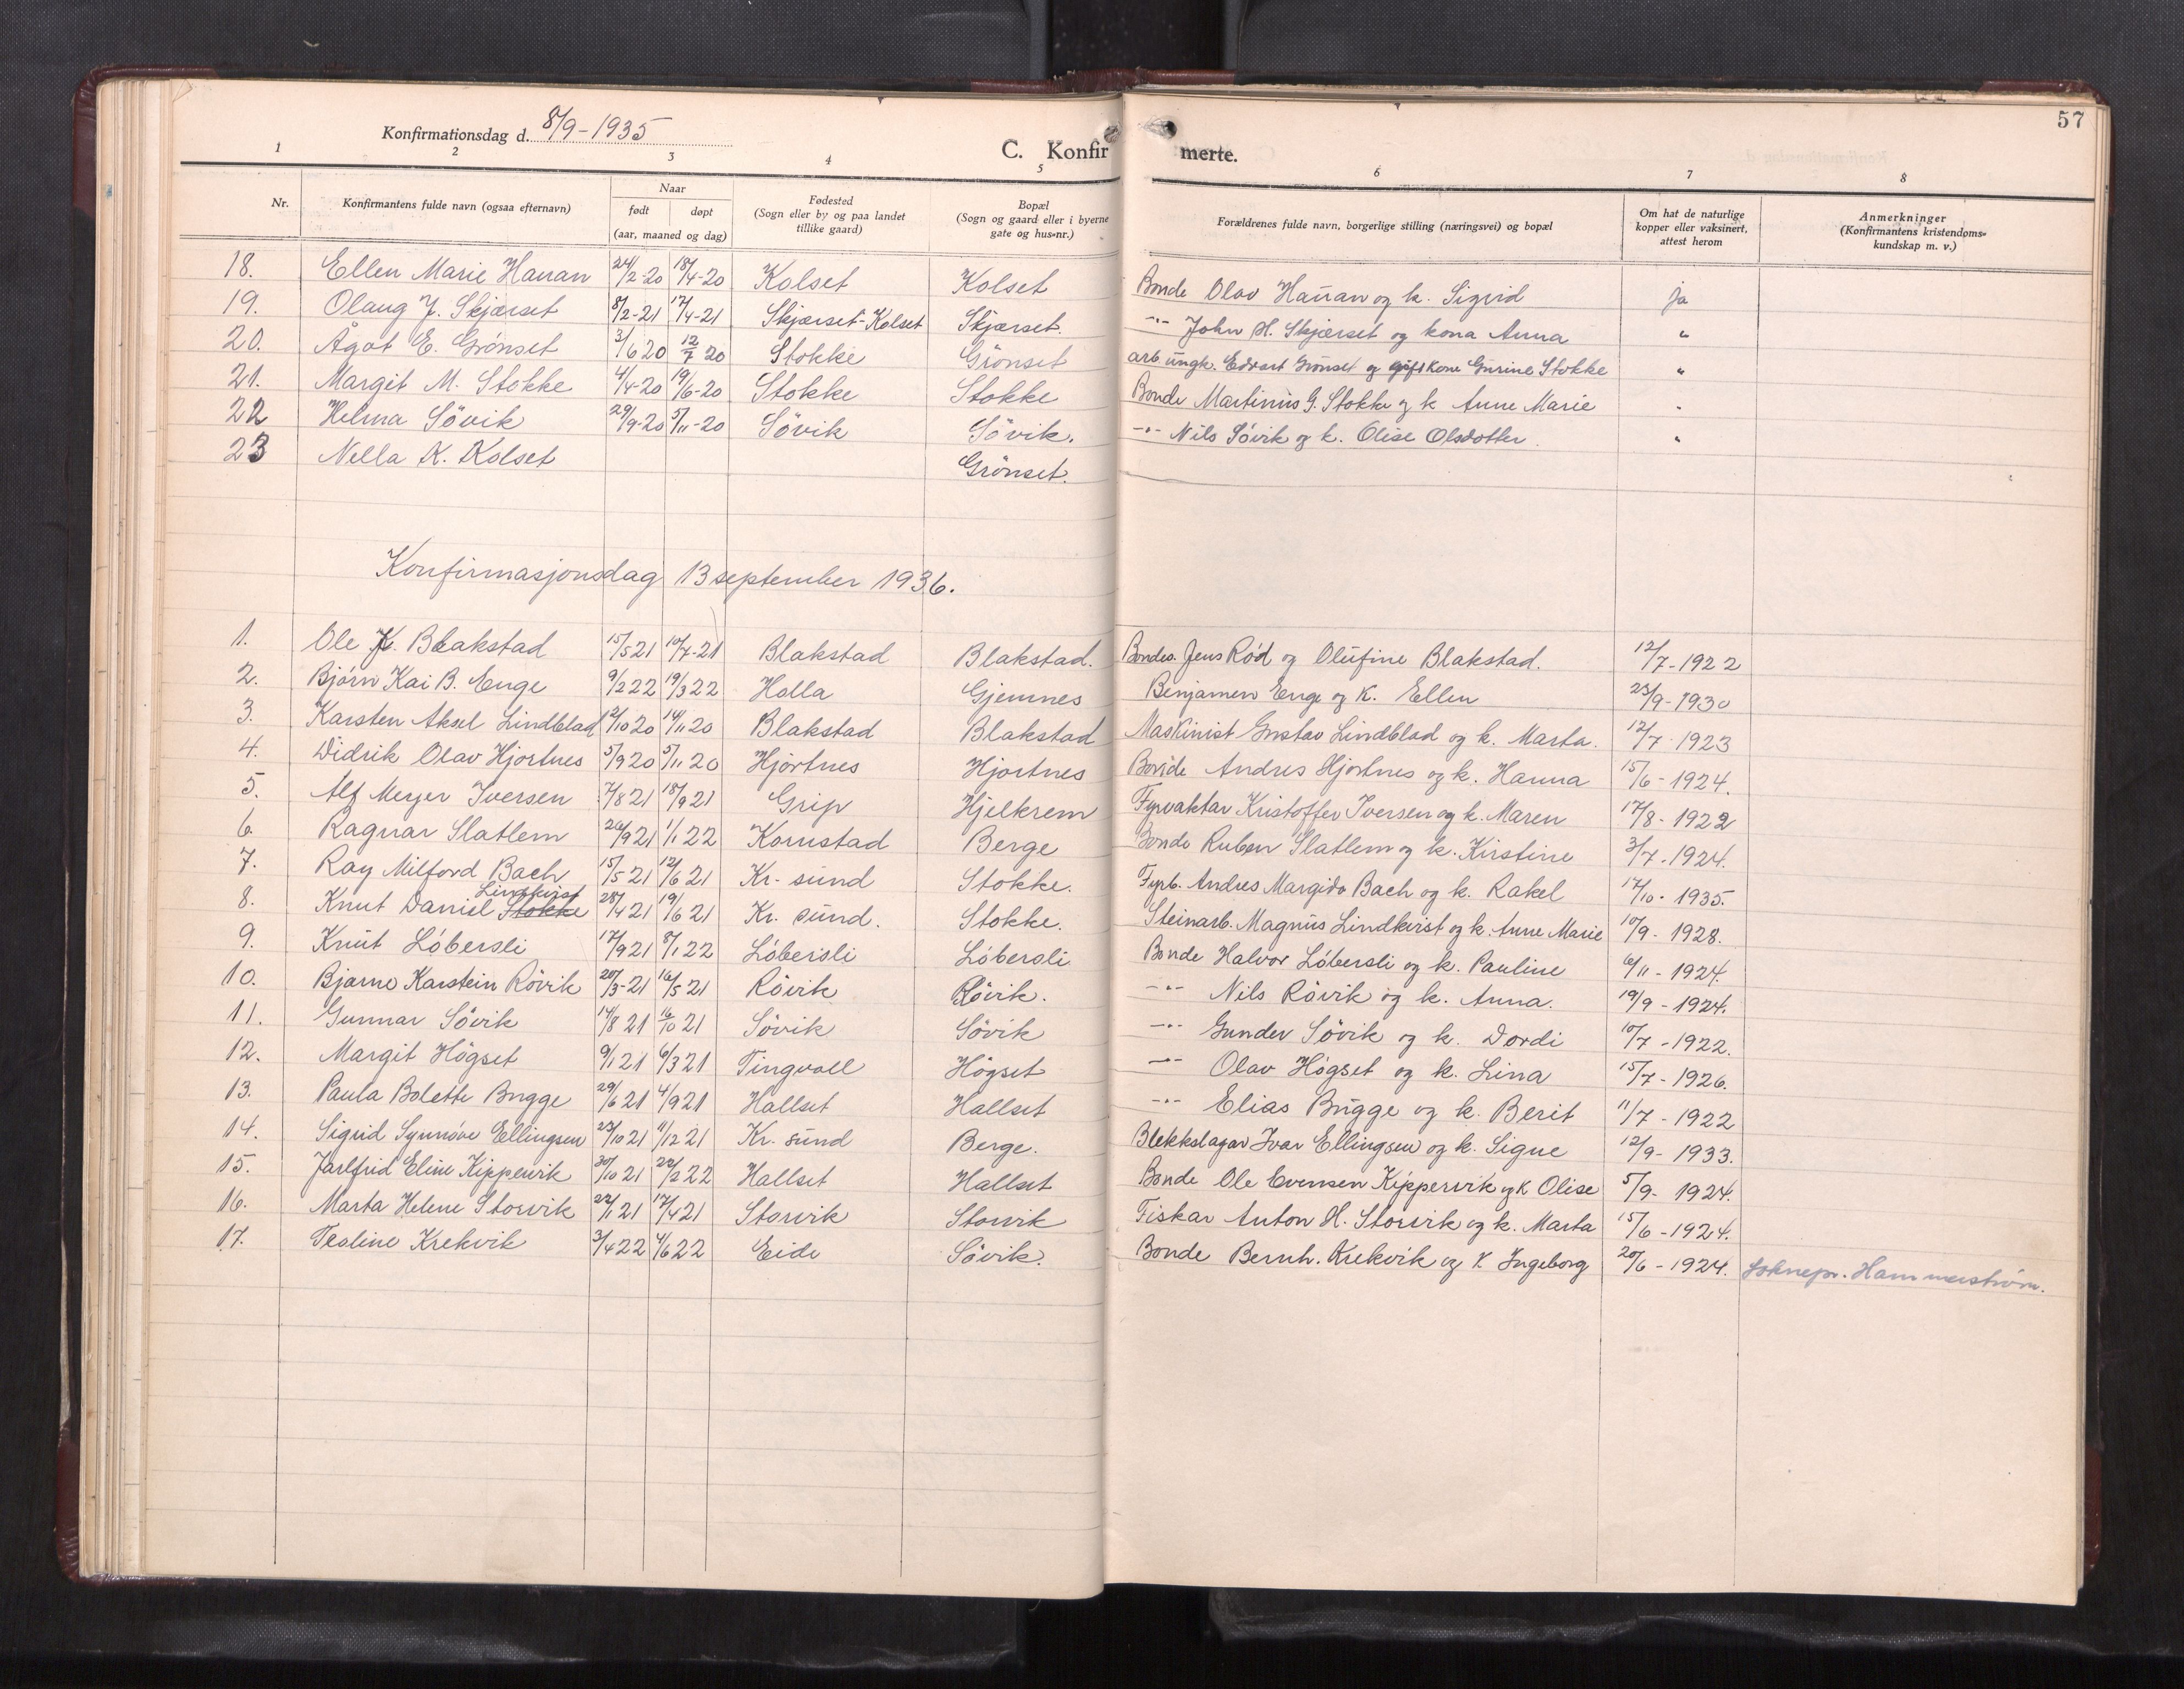 57
Konfirmationsdag d. 8/9-1935
C. Konfirmerte.
1 2 3 4 5 6 7 8
Nr.
Konfirmantens fulde navn (ogsaa efternavn)
Naar
født døpt
(aar, maaned og dag)
Fødested
(Sogn eller by og paa landet
tillike gaard)
Bopæl
(Sogn og gaard eller i byerne
gate og hus-nr.)
Forældrenes fulde navn, borgerlige stilling (næringsvei) og bopæl
Om hat de naturlige
kopper eller vaksinert,
attest herom
Anmerkninger
(Konfirmantens kristendoms-
kundskap m. v.)
18. Ellen Marie Hanan 24/2-20 18/4-20 Kolset Kolset Bonde Olav Hanan og k. Sigrid ja
19. Olaug J. Skjærset 8/2-21 17/4-21 Skjærset-Kolset Skjærset. -"- John H. Skjærset og kona Anna "
20. Ågot E. Grønset 3/6 20 12/7 20 Stokke Grönset arb. ungk. Edvart Grönset og gift kone Gurine Stokke "
21. Margit M. Stokke 4/4-20 19/6-20 Stokke Stokke Bonde Martinus G. Stokke og k Anne Marie "
22 Helma Sövik 29/9-20 5/11-20 Sövik Sövik. -"- Nils Sövik og k. Olise Olsdotter. "
23 Nella K. Kolset Grönset.
Konfirmasjonsdag 13 september 1936.
1. Ole K. Blakstad 15/5 21 10/7-21 Blakstad Blakstad. Bondes. Jens Rød og Olufine Blakstad. 12/7-1922
2. Bjørn Kai B. Enge 9/2 22 19/3 22 Holla Gjemnes Benjamen Enge og K. Ellen 23/9-1930
3. Karsten Aksel Lindblad 12/10 20 14/11 20 Blakstad Blakstad Maskinist Gustav Lindblad og k. Marta. 12/7-1923
4. Didrik Olav Hjortnes 5/9 20 5/11 20 Hjortnes Hjortnes Bonde Andres Hjortnes og k. Hanna 15/6-1924.
5. Alf Meyer Iversen 7/8 21 18/9 21 Grip Hjelkrem Fyrvaktar Kristoffer Iversen og k. Maren 17/8-1922
6. Ragnar Slatlem 26/9 21 1/1 22 Kornstad Berge Bonde Ruben Slatlem og k. Kirstine 3/7-1924.
7. Ray Milford Bach 15/5 21 12/6 21 Kr. sund Stokke. Fyrb. Andres Margido Bach og k. Rakel 17/10-1935.
8. Knut Daniel Stokke Lindkvist 28/4 21 19/6 21 Kr. sund. Stokke. Steinarb. Magnus Lindkvist og k. Anne Marie 10/9-1928.
9. Knut Löbersli 17/9 21 8/1 22 Löbersli Löbersli Bonde Halvor Löbersli og k. Pauline 6/11-1924.
10. Bjarne Karstein Rövik 20/3-21 16/5 21 Rövik Rövik. -"- Nils Rövik og k. Anna. 19/9-1924.
11. Gunnar Sövik 14/8 21 16/10 21 Sövik Sövik -"- Gunder Sövik og k. Dordi 10/7-1922.
12. Margit Högset 9/1 21 6/3 21 Tingvoll Högset -"- Olav Högset og k. Lina 15/7-1926.
13. Paula Bolette Bugge 29/6 21 4/9 21 Hallset Hallset -"- Elias Bugge og k. Berit 11/7-1922
14. Sigrid Synnöve Ellingsen 23/10 21 11/12 21 Kr. sund Berge. Blekkslagar Ivar Ellingsen og k. Signe 12/9-1933.
15. Jarlfrid Eline Kippervik 30/10 21 22/2 22 Hallset Hallset Bonde Ole Evensen Kippervik og K Olise 5/9-1924.
16. Marta Helene Storvik 22/1 21 17/4 21 Storvik Storvik Fiskar Anton H. Storvik og k. Marta 15/6-1924.
17. Tealine Krekvik 3/4 22 4/6 22 Eide Sövik. Bonde Bernh. Krekvik og k Ingeborg 20/6-1924. Soknepr. Hammerstrøm.